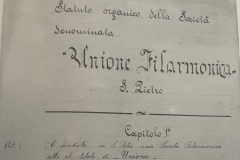 Statuto organico della Società
denominata
"Unione Filarmonica"
S. Pietro
Capitolo 1º
Art. 1 È fondata in S. Pietro una Società Filarmonica
sotto il titolo di "Unione"